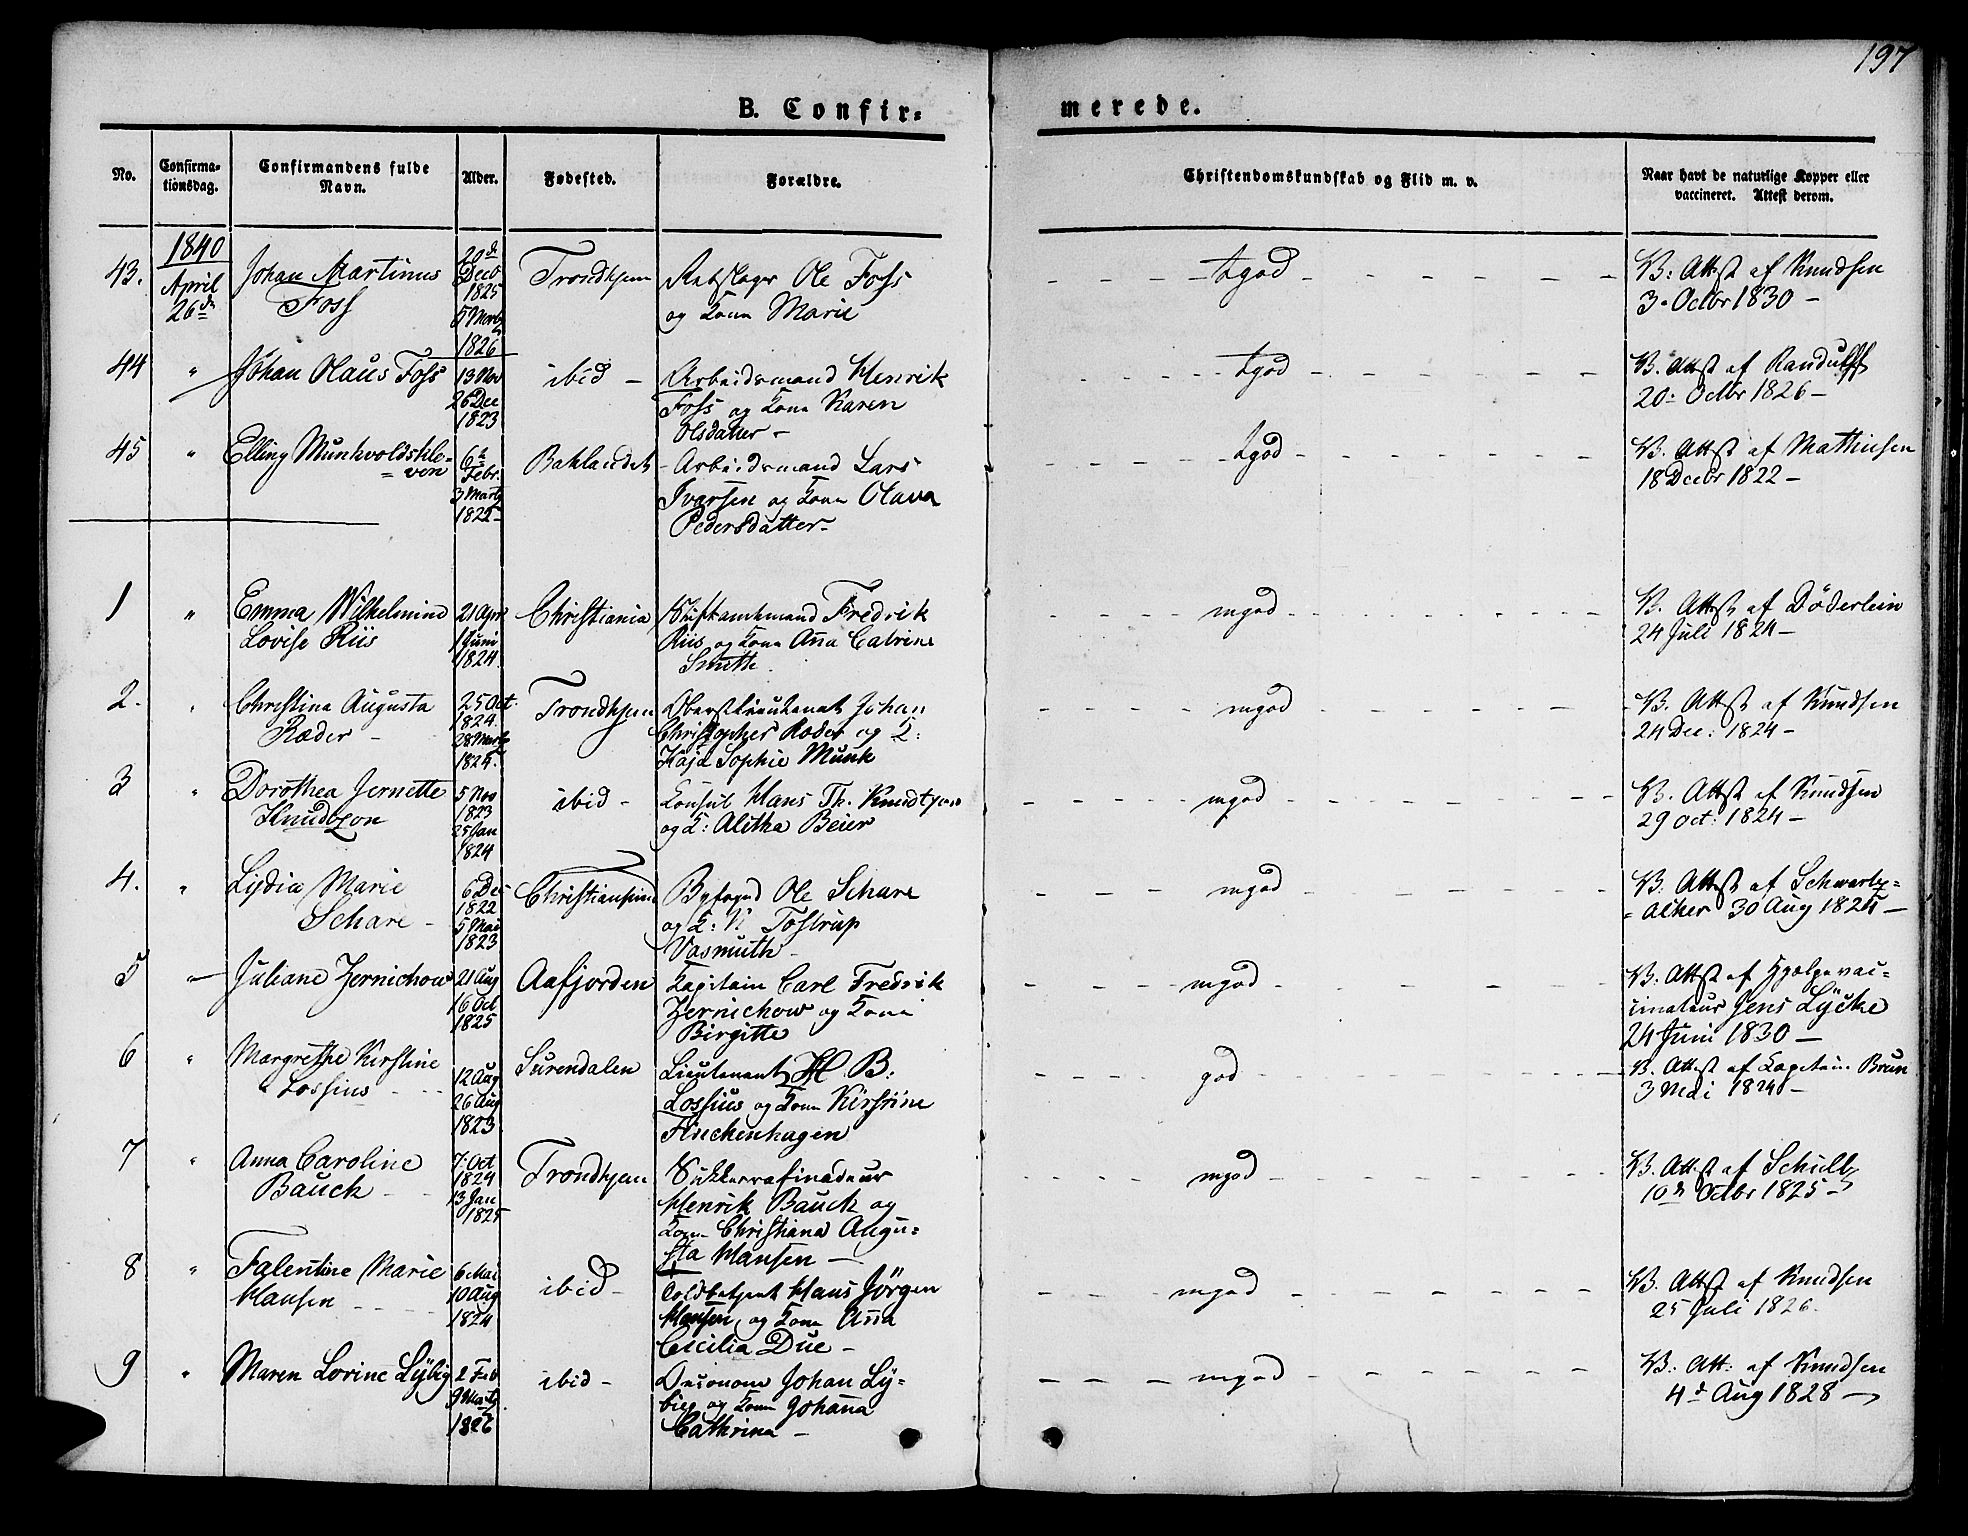 197
B. Confir=
merede.
No.
Confirma-
tionsdag.
Confirmandens fulde
Navn.
Alder.
Fødested.
Forældre.
Christendomskundskab og Flid m. v.
Naar havt de naturlige Kopper eller
vaccineret. Attest derom.
43.
1840
April
26de
Johan Martinus
Foss
20de
Decb
1825
5 Martz
1826
Trondhjem
Rebslager Ole Foss
og Kone Marie
tgod
V: Attst af Knudsen
3 Octbr 1830 –
44
"
Johan Olaus Foss
13 Nov
26 Dec
1823
ibid –
Arbeidsmand Henrik
Foss og Kone Karen
Olsdatter –
tgod
V. Attst af Randulff
20 Octbr 1826 –
45
"
Elling Munkvoldskle=
=ven
6te
Febr.
3 Martz
1822
Baklandet
Arbeidsmand Lars
Ivarsen og Kone Olava
Pedersdatter –
tgod
V. Attst af Mathiesen
18 Decbr 1822 –
1
"
Emma Wilhelmine
Lovise Riis
21 Apr
1 Juni
1824
Christiania
Stiftamtmand Fredrik
Riis og Kone Anna Catrine
Smette
mgod
V. Attst af Döderlein
24 Juli 1824 –
2.
"
Christine Augusta
Ræder –
25 Oct.
1824.
28 Martz
1825.
Trondhjem
Oberstlieutenat Johan
Christopher Ræder og K:
Kaja Sophie Munk
mgod
V. Attst af Knudsen
24 Dec: 1824 –
3
"
Dorothea Jernette
Knudtzon
5 Nov
1823
25 Jan
1824
ibid –
Konsul Hans Th. Knudtzon
og K: Aletha Beier
mgod
V. Attst af Knudsen
29 Oct: 1824 –
4.
"
Lydia Marie
Schare –
6 Dec
1822
5 Mai
1823
Christiansund
Byfoged Ole Schare
og K: N. Tostrup
Vasmuth –
mgod
V: Attst af Schwartz=
=acher 30 Aug 1824 –
5
"
Juliane Zernichow
21 Aug
16 Oct
1825
Aafjorden
Kapitain Carl Fredrik
Zernichow og Kone
Birgitte
mgod
V: Attst af Hjælpevac=
cinateur Jens Lycke
24 Juni 1830 –
6
"
Margrethe Kirstine
Lossius
12 Aug
26 Aug
1823
Surendalen
Lieutenant H. B:
Lossius og Kone Kirstine
Finckenhagen
god
V. Attst af Kapitain Brun
3 Mai 1824 –
7
"
Anna Caroline
Bauck
7 Oct
1824
13 Jan
1825
Trondhjem
Sukkerrafinadeur
Henrik Bauck og
Kone Christiane Augu=
sta Hansen –
mgod
V. Attst af Schultz
10de Octbr 1825 –
8
"
Falentine Marie
Hansen
6 Mai
10 Aug
1824
ibid –
Toldbetjent Hans Jörgen
Hansen og Kone Anna
Cicilia Due –
mgod
V. Attst af Knudsen
25 Juli 1826.
9
"
Maren Lovine Lybig
2 Feb
9 Martz
1826
ibid –
Oeconom Johan Ly=
big og Kone Johana
Cathrina –
mgod
V: Att: af Knudsen
4de Aug 1828 –